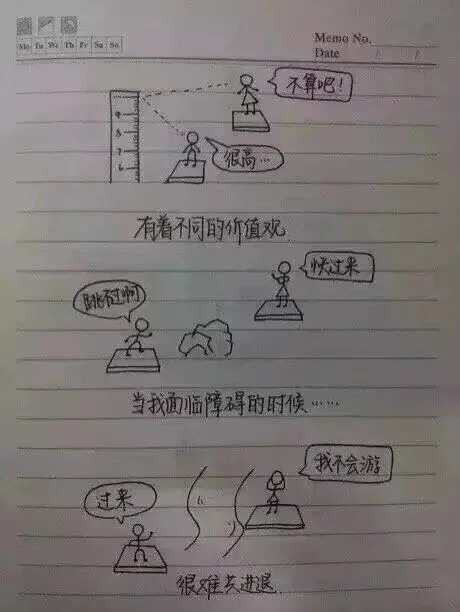 Mo Tu We Th Fr Sa Su
Memo No.
Date
不算吧!
很高…
有着不同的价值观
快过来
跳不过啊
当我面临障碍的时候……
我不会游
过来
很难共进退